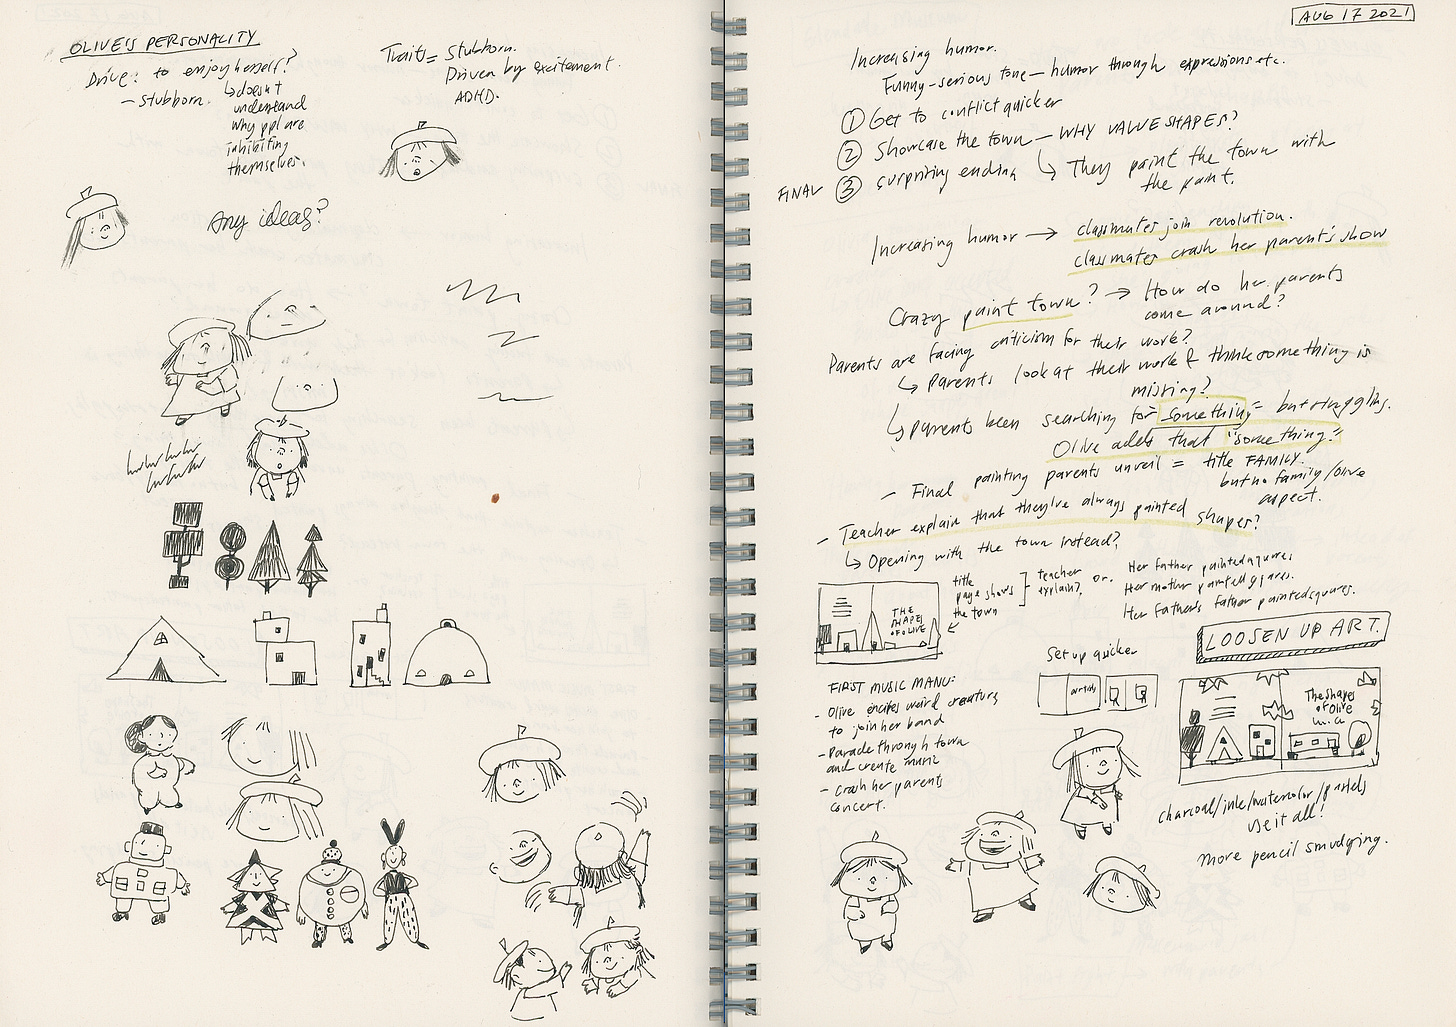 OLIVE'S PERSONALITY
Drive: to enjoy herself?
- stubborn.
↳ doesn't
understand
why ppl are
inhibiting
themselves.
Traits = Stubborn.
Driven by excitement.
ADHD.
Any ideas?
AUG 17 2021
Increasing humor.
Funny-serious tone — humor through expressions etc.
① Get to conflict quicker
② Showcase the town — WHY VALUE SHAPES?
FINAL ③ surprising ending ↳ They paint the town with
the paint.
Increasing humor → classmates join revolution.
classmates crash her parent's show
Crazy paint town? → How do her parents
come around?
Parents are facing criticism for their work?
↳ Parents look at their work & think something is
missing?
↳ parents been searching for "something" but struggling.
Olive adds that "something."
- Final painting parents unveil = title FAMILY.
but no family/Olive
aspect.
- Teacher explain that they've always painted shapes?
↳ Opening with the town instead?
THE
SHAPES
OF OLIVE
title
page shows
the town
teacher
explain?
or.
Her father painted squares
Her mother painted squares.
Her father's father painted squares.
LOOSEN UP ART.
Set up quicker
FIRST MUSIC MANU:
- Olive enlists weird creatures
to join her band
- Parade through town
and create music
- Crash her parents
concert.
The Shapes
of Olive
charcoal/ink/watercolor/pastels
use it all!
more pencil smudging.